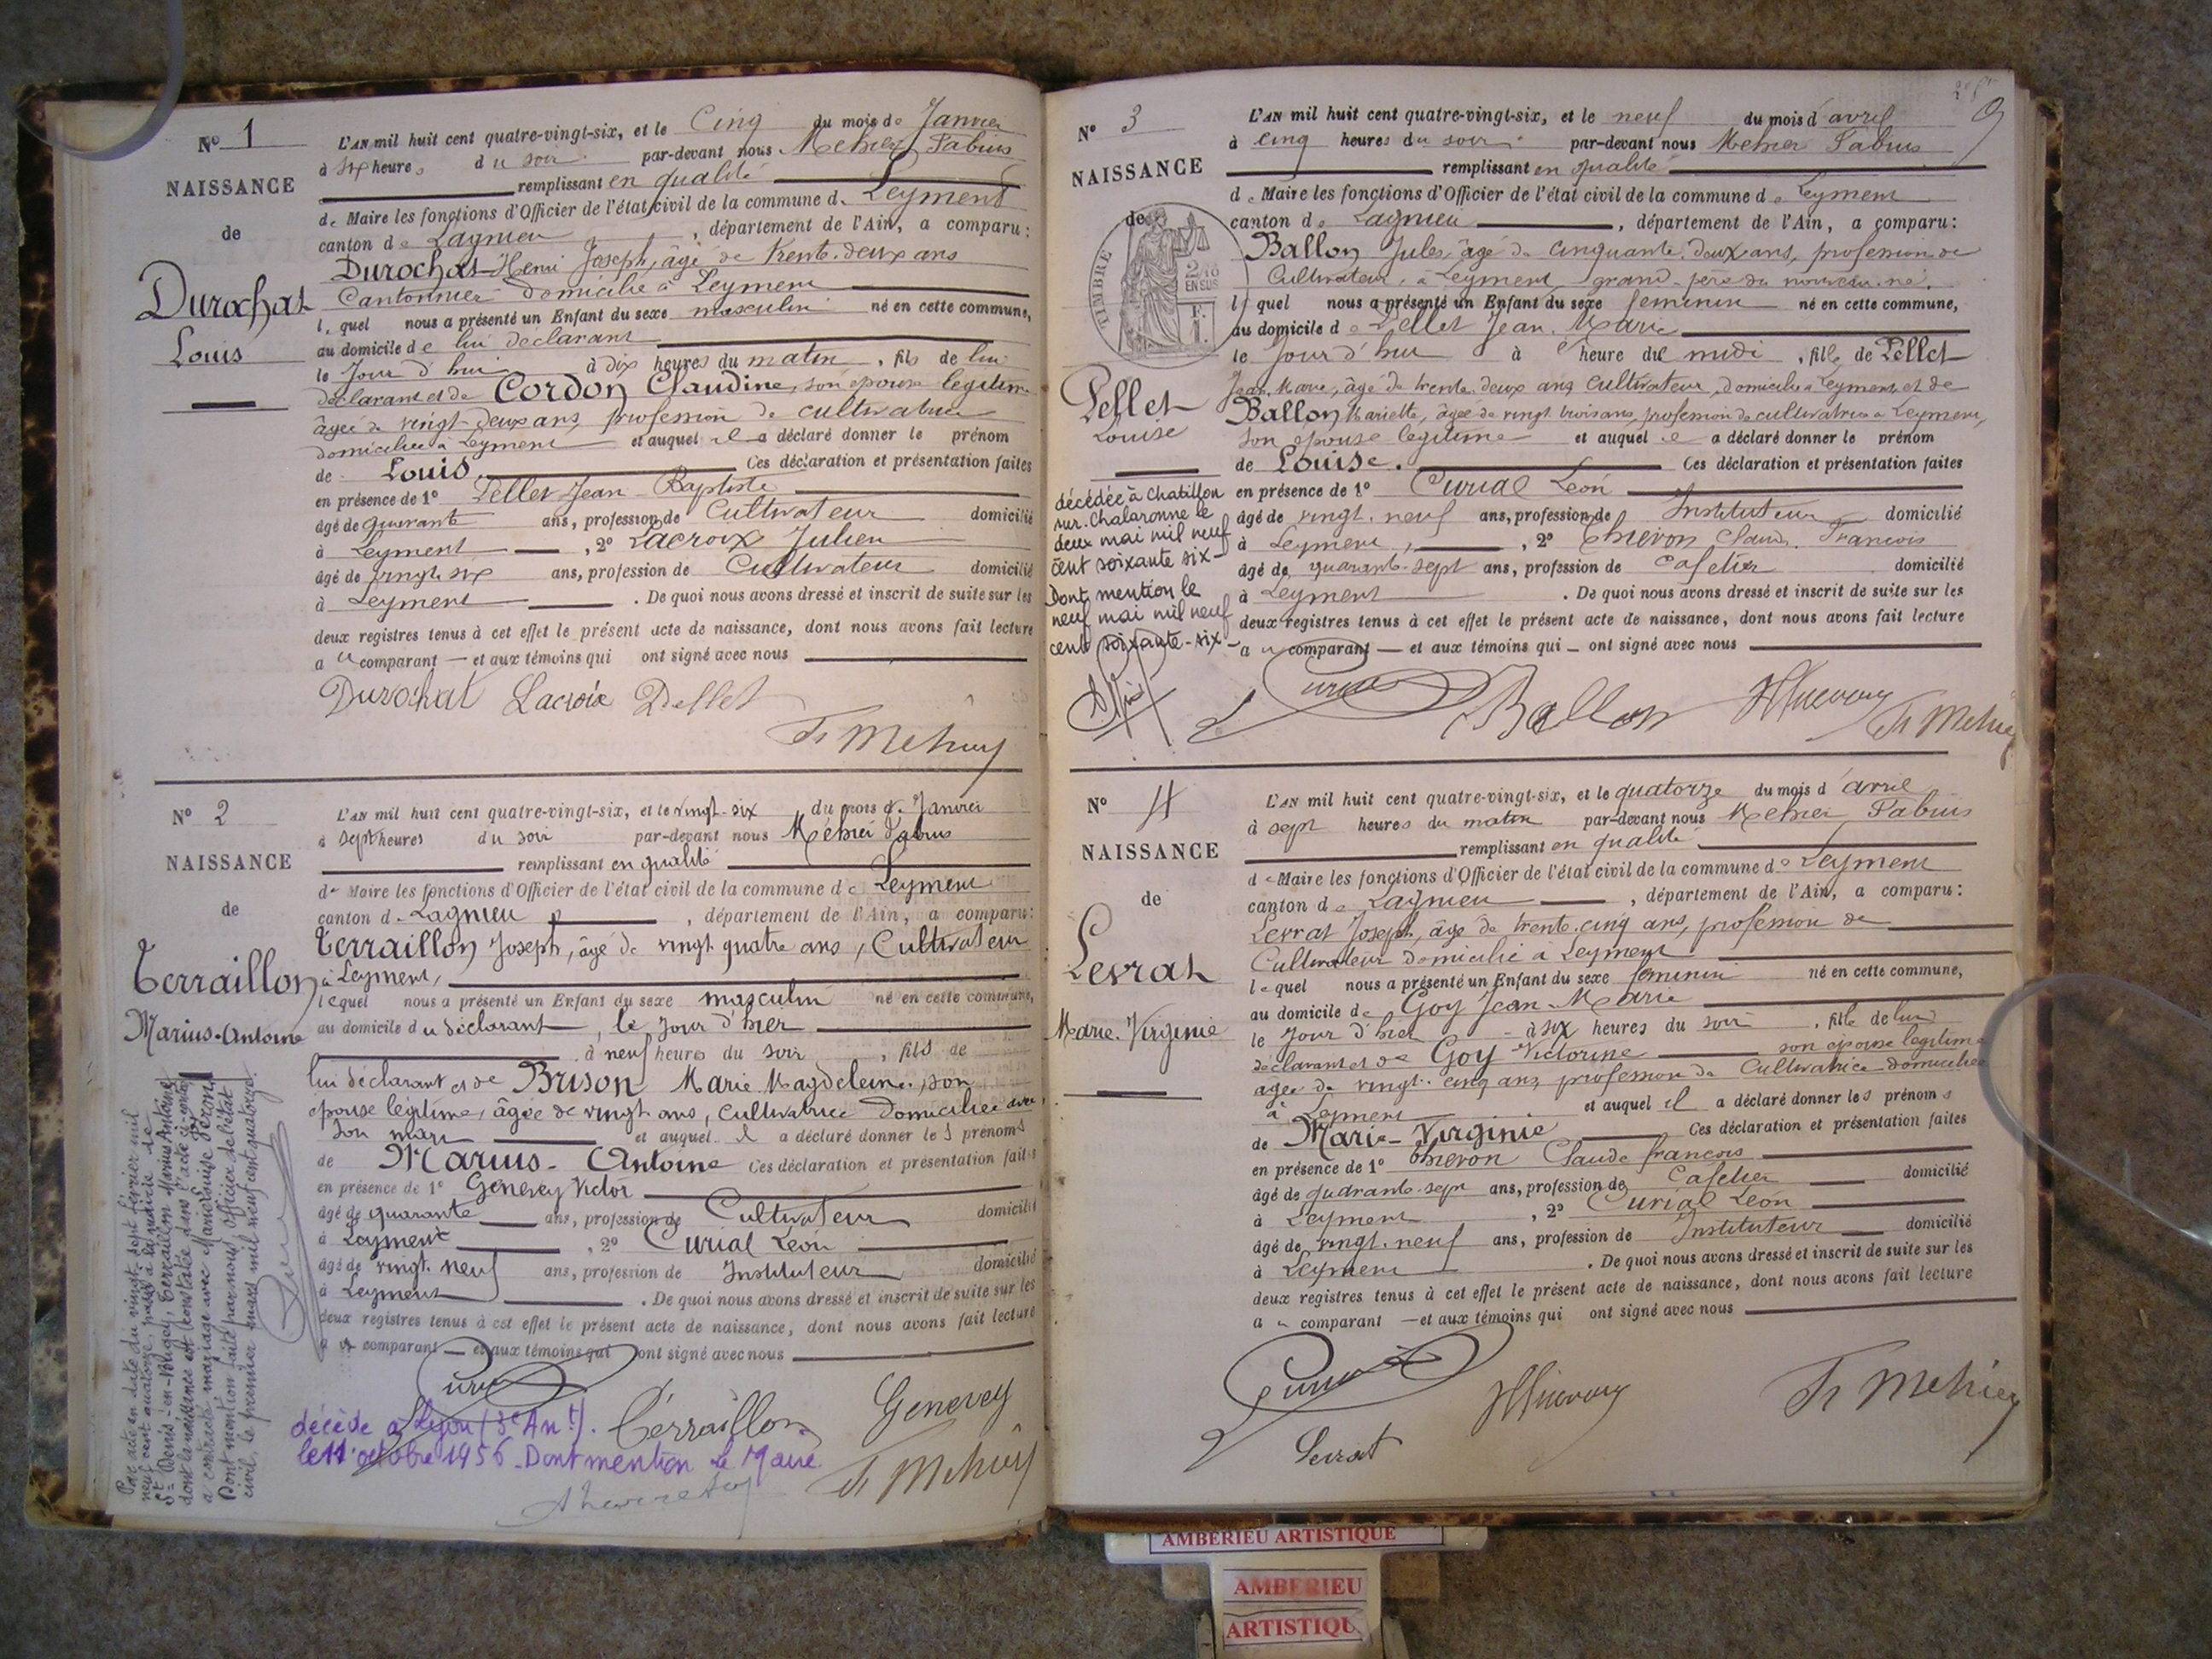 N° 1
NAISSANCE
de
Durochat
Louis
L'AN mil huit cent quatre-vingt-six, et le Cinq du mois de Janvier
à six heures du soir par-devant nous Mehier Fabius
remplissant en qualité
de Maire les fonctions d'Officier de l'état civil de la commune de Leyment
canton de Lagnieu, département de l'Ain, a comparu:
Durochat Henri Joseph, âgé de trente-deux ans
Cantonnier domicilié à Leyment
lequel nous a présenté un Enfant du sexe masculin né en cette commune,
au domicile de lui déclarant
le Jour d'hui à dix heures du matin, fils de lui
déclarant et de Cordon Claudine, son épouse légitime
âgée de vingt-deux ans, profession de cultivatrice
domiciliée à Leyment et auquel il a déclaré donner le prénom
de Louis. Ces déclaration et présentation faites
en présence de 1° Pellet Jean-Baptiste
âgé de quarante ans, profession de Cultivateur domicilié
à Leyment, 2° Lacroix Julien
âgé de vingt-six ans, profession de Cultivateur domicilié
à Leyment. De quoi nous avons dressé et inscrit de suite sur les
deux registres tenus à cet effet le présent acte de naissance, dont nous avons fait lecture
au comparant et aux témoins qui ont signé avec nous
Durochat Lacroix Pellet
F. Mehier
N° 2
NAISSANCE
de
Terraillon
Marius-Antoine
L'AN mil huit cent quatre-vingt-six, et le vingt-six du mois de Janvier
à sept heures du soir par-devant nous Mehier Fabius
remplissant en qualité
de Maire les fonctions d'Officier de l'état civil de la commune de Leyment
canton de Lagnieu, département de l'Ain, a comparu:
Terraillon Joseph, âgé de vingt quatre ans, Cultivateur
à Leyment,
lequel nous a présenté un Enfant du sexe masculin né en cette commune,
au domicile du déclarant, le Jour d'hier
à neuf heures du soir, fils de
lui déclarant et de Brison Marie Magdeleine, son
épouse légitime, âgée de vingt ans, cultivatrice domiciliée avec
son mari et auquel il a déclaré donner les prénoms
de Marius-Antoine Ces déclaration et présentation faites
en présence de 1° Genevey Victor
âgé de quarante ans, profession de Cultivateur domicilié
à Leyment, 2° Curial Léon
âgé de vingt-neuf ans, profession de Instituteur domicilié
à Leyment. De quoi nous avons dressé et inscrit de suite sur les
deux registres tenus à cet effet le présent acte de naissance, dont nous avons fait lecture
au comparant et aux témoins qui ont signé avec nous
Curial Terraillon Genevey
F. Mehier
décédé à Lyon (3e Ar.t).
le 11 octobre 1956. Dont mention Le Maire
Par acte en date du vingt-sept février mil
neuf cent quatorze, passé à la mairie de
St Denis-en-Bugey, Terraillon Marius Antoine
dont la naissance est constatée dans l'acte ci-contre
a contracté mariage avec Marie Louise Peron
Dont mention faite par nous, officier de l'état
civil, le premier mars mil neuf cent quatorze.
N° 3
NAISSANCE
de
TIMBRE
EN SUS
F.
1.
Pellet
Louise
décédée à Chatillon
sur-Chalaronne le
deux mai mil neuf
cent soixante six-
Dont mention le
neuf mai mil neuf
cent soixante-six-
9
L'AN mil huit cent quatre-vingt-six, et le neuf du mois d'avril
à cinq heures du soir par-devant nous Mehier Fabius
remplissant en qualité
de Maire les fonctions d'Officier de l'état civil de la commune de Leyment
canton de Lagnieu, département de l'Ain, a comparu:
Ballon Jules, âgé de cinquante-deux ans, profession de
Cultivateur, à Leyment, grand-père du nouveau-né,
lequel nous a présenté un Enfant du sexe féminin né en cette commune,
au domicile de Pellet Jean-Marie
le Jour d'hui à heure de midi, fille de Pellet
Jean-Marie, âgé de trente-deux ans, Cultivateur, domicilié à Leyment, et de
Ballon Mariette, âgée de vingt-trois ans, profession de cultivatrice à Leyment,
son épouse légitime et auquel il a déclaré donner le prénom
de Louise. Ces déclaration et présentation faites
en présence de 1° Curial Léon
âgé de vingt-neuf ans, profession de Instituteur domicilié
à Leyment, 2° Thievon Claude François
âgé de quarante-sept ans, profession de Cafetier domicilié
à Leyment. De quoi nous avons dressé et inscrit de suite sur les
deux registres tenus à cet effet le présent acte de naissance, dont nous avons fait lecture
au comparant et aux témoins qui ont signé avec nous
Curial Ballon Thievon F. Mehier
N° 4
NAISSANCE
de
Levrat
Marie-Virginie
L'AN mil huit cent quatre-vingt-six, et le quatorze du mois d'avril
à sept heures du matin par-devant nous Mehier Fabius
remplissant en qualité
de Maire les fonctions d'Officier de l'état civil de la commune de Leyment
canton de Lagnieu, département de l'Ain, a comparu:
Levrat Joseph, âgé de trente-cinq ans, profession de
Cultivateur domicilié à Leyment
lequel nous a présenté un Enfant du sexe féminin né en cette commune,
au domicile de Goy Jean-Marie
le Jour d'hier à six heures du soir, fille de lui
déclarant et de Goy Victorine son épouse légitime
âgée de vingt-cinq ans, profession de Cultivatrice domiciliée
à Leyment et auquel il a déclaré donner les prénoms
de Marie-Virginie Ces déclaration et présentation faites
en présence de 1° Thievon Claude François
âgé de quarante-sept ans, profession de Cafetier domicilié
à Leyment, 2° Curial Léon
âgé de vingt-neuf ans, profession de Instituteur domicilié
à Leyment. De quoi nous avons dressé et inscrit de suite sur les
deux registres tenus à cet effet le présent acte de naissance, dont nous avons fait lecture
au comparant et aux témoins qui ont signé avec nous
Curial Thievon F. Mehier
Levrat
AMBERIEU ARTISTIQUE
AMBERIEU
ARTISTIQU